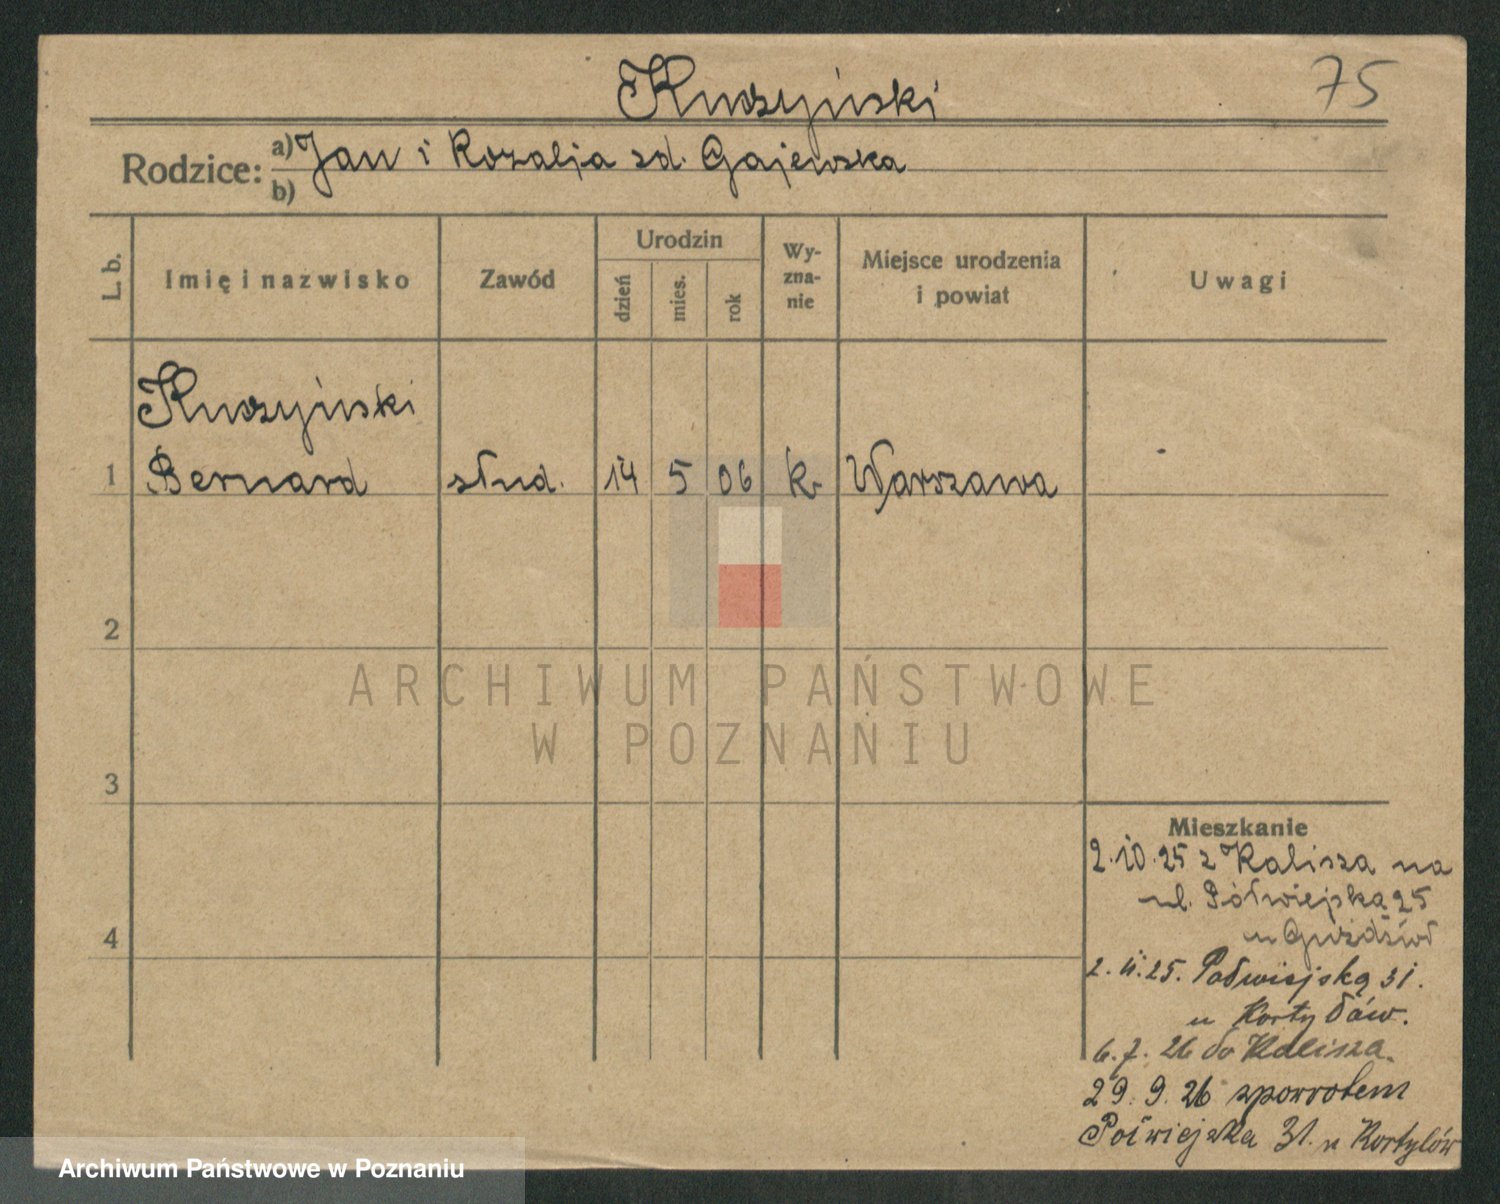 75
Kuszyński
Rodzice: a) Jan i Rozalja zd. Gajewska
b)
L. b.
Imię i nazwisko
Zawód
Urodzin
dzień
mies.
rok
Wy-
zna-
nie
Miejsce urodzenia
i powiat
Uwagi
Kuszyński
1 Bernard stud. 14 5 06 k. Warszawa
2
3
4
ARCHIWUM PAŃSTWOWE
W POZNANIU
Mieszkanie
2.10.25 z Kalisza na
ul. Półwiejska 25
u
2.11.25. Połwiejską 31.
u Kortylów.
6.7.26 do Kalisza.
29.9.26 zpowrotem
Półwiejska 31. u Kortylów
Archiwum Państwowe w Poznaniu